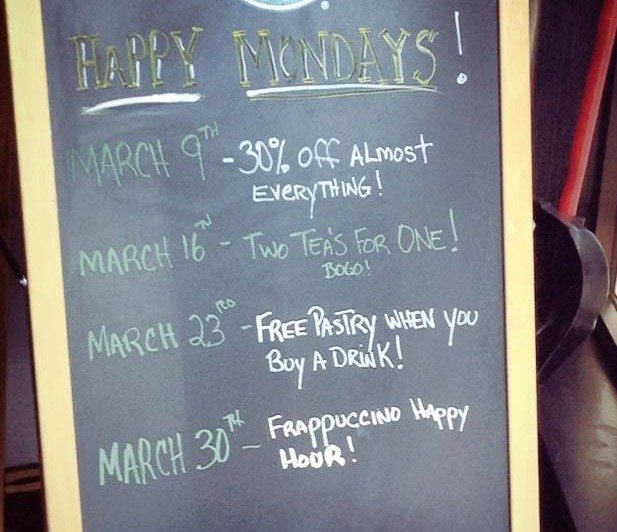 HAPPY MONDAYS!
MARCH 9TH - 30% OFF ALMOST
EVERYTHING!
MARCH 16TH - TWO TEA'S FOR ONE!
BOGO!
MARCH 23RD - FREE PASTRY WHEN YOU
BUY A DRINK!
MARCH 30TH - FRAPPUCCINO HAPPY
HOUR!